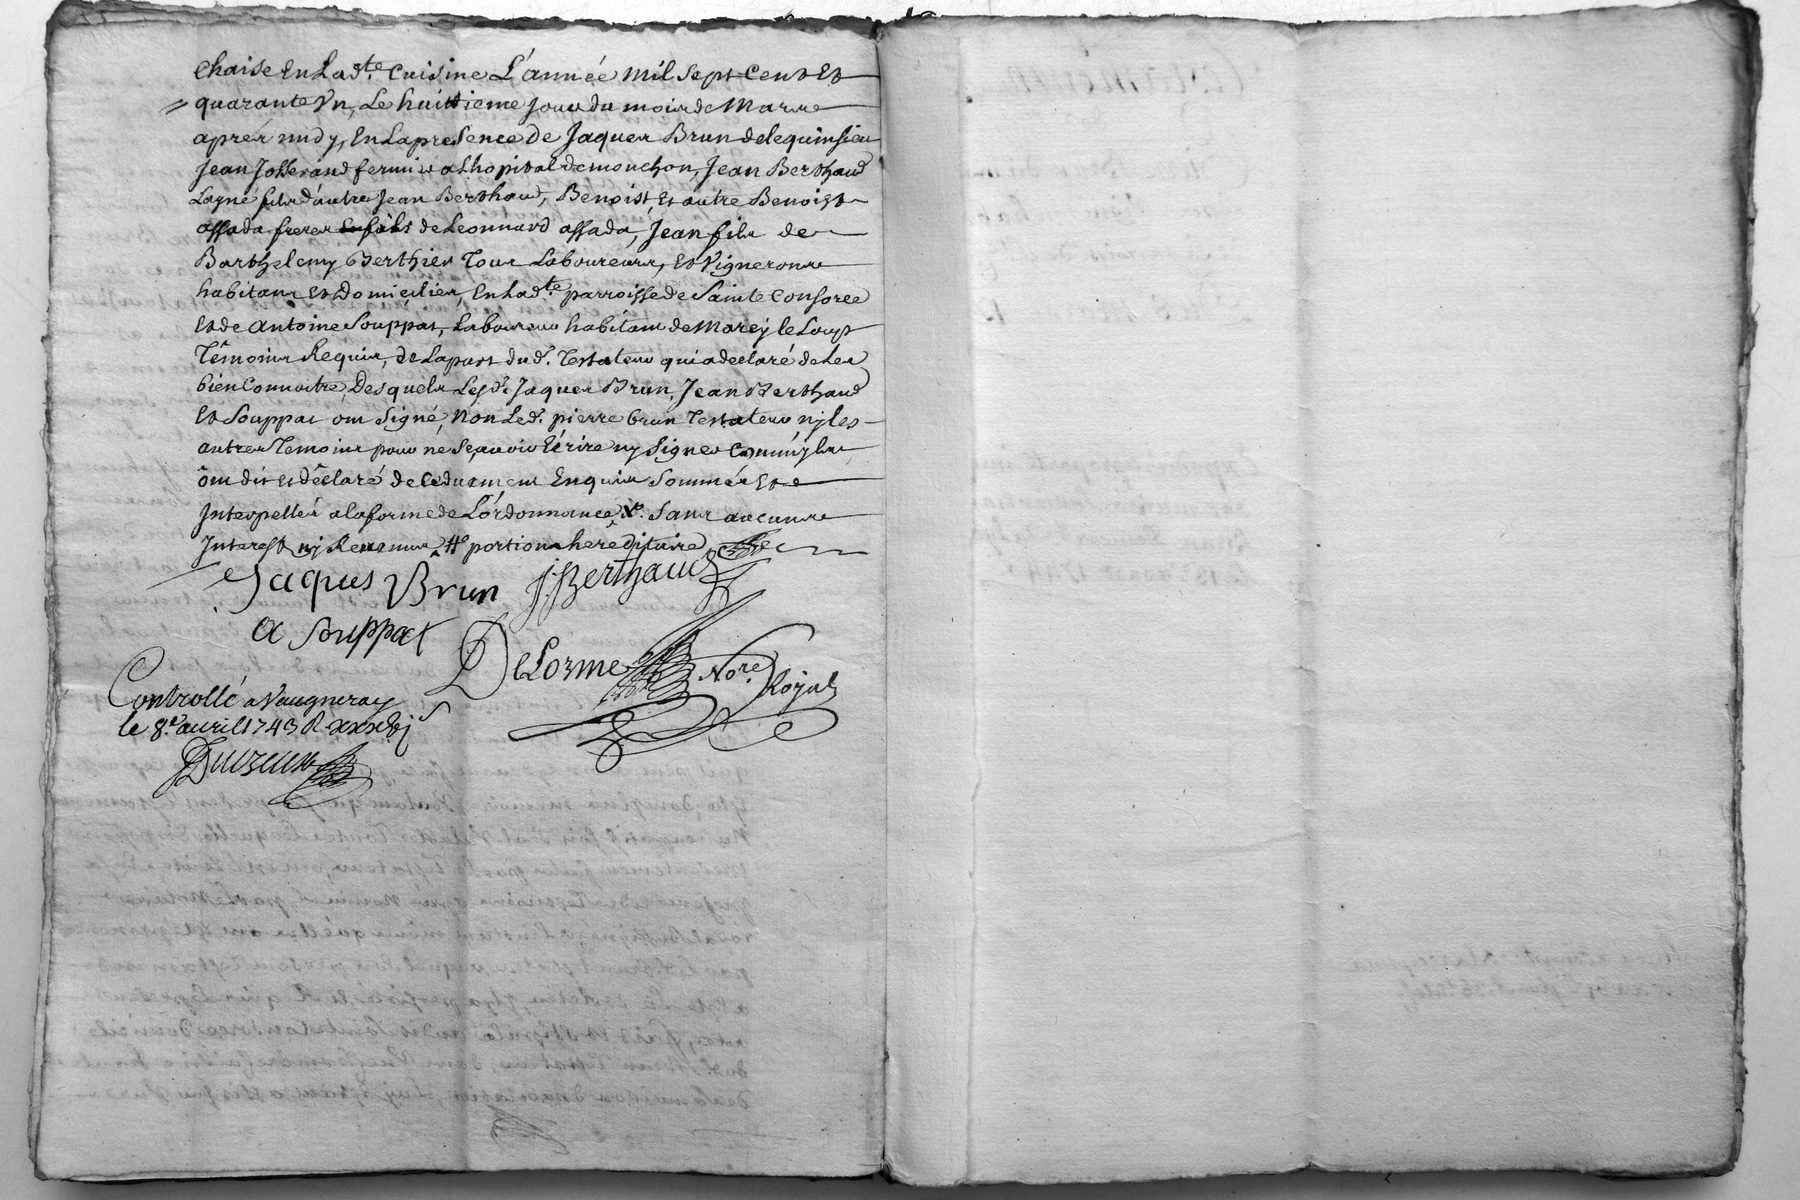 chaise En Lad.te Cuisine L'année mil sept Cent Et
quarante Un, Le huittieme Jour du mois de Mars
aprés midy, En La presence de Jaques Brun de lequinsieu
Jean Josserand fermier a L'hopital de mouchon, Jean Berthaud
Layné fils d'autre Jean Berthaud, Benoist, Et autre Benoist
assada freres de Leonnard assada, Jean fils de
Barthelemy Berthier Tous Laboureurs, Et Vignerons
habitans Et Domiciliés, En Lad.te parroisse de Sainte Consorce
Et de Antoine Souppat, Laboureur habitant de Marcy le Loup
Témoins Requis, de La part dud. Testateur qui a declaré de Les
bien Connoitre, Desquels Lesd. Jaques Brun, Jean Berthaud
Et Souppat ont Signé, Non Led. pierre brun Testateur ny les
autres Temoins pour ne Sçavoir Ecrire ny Signer Comm'yls
ont dit et déclaré de Ce duement Enquis Sommés Et
Interpellés a la forme de L'ordonnance, X. Sans aucuns
Interest ny Revenus, # portion hereditaire
Jaques Brun J: Berthaud
A Souppat
DeLorme No.re Royal
Controllé a Vaugneray
le 8.e avril 1743 R